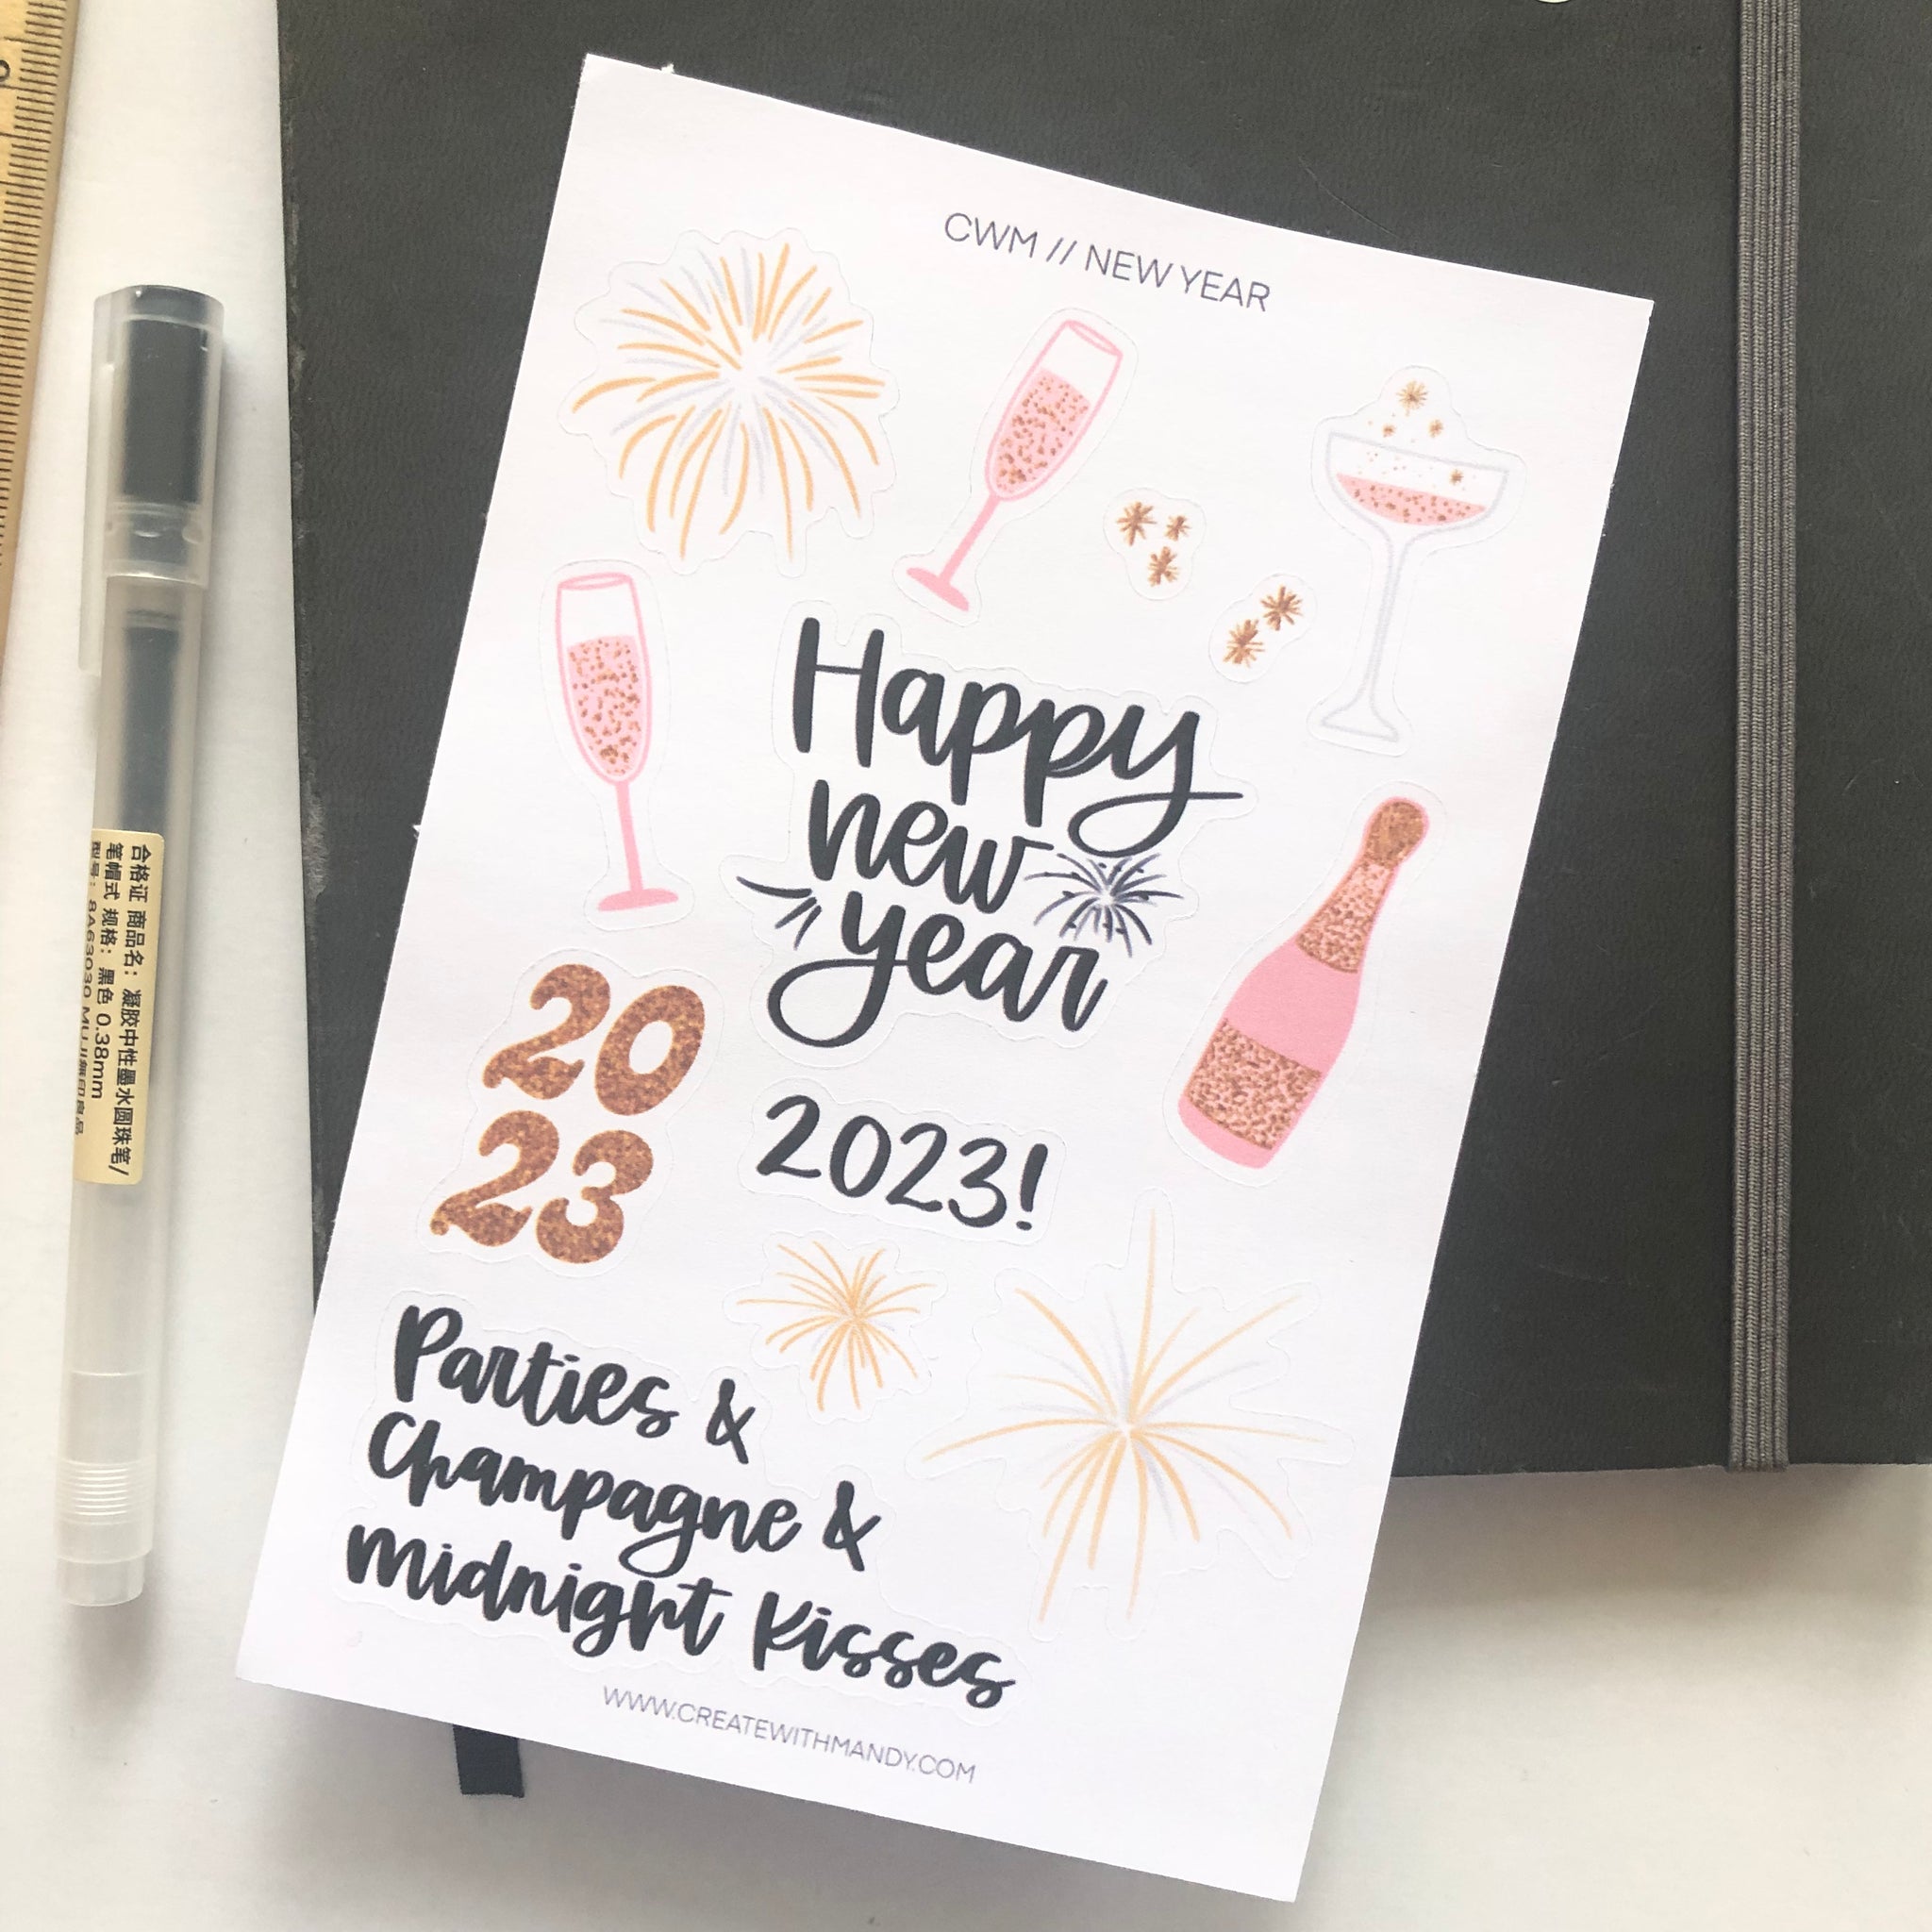 CWM // NEW YEAR
Happy
new
year
20
23
2023!
Parties &
Champagne &
Midnight Kisses
WWW.CREATEWITHMANDY.COM
合格证 商品名：凝胶中性墨水圆珠笔/
笔帽式 规格：黑色 0.38mm
型号：8A63030 MUJI無印良品